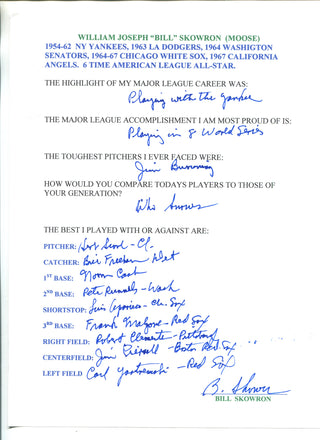 WILLIAM JOSEPH "BILL" SKOWRON (MOOSE)
1954-62 NY YANKEES, 1963 LA DODGERS, 1964 WASHIGTON
SENATORS, 1964-67 CHICAGO WHITE SOX, 1967 CALIFORNIA
ANGELS. 6 TIME AMERICAN LEAGUE ALL-STAR.
THE HIGHLIGHT OF MY MAJOR LEAGUE CAREER WAS:
Playing with the Yankee
THE MAJOR LEAGUE ACCOMPLISHMENT I AM MOST PROUD OF IS:
Playing in 8 World Series
THE TOUGHEST PITCHERS I EVER FACED WERE:
Jim Bunning
HOW WOULD YOU COMPARE TODAYS PLAYERS TO THOSE OF
YOUR GENERATION?
Who knows
THE BEST I PLAYED WITH OR AGAINST ARE:
PITCHER: Herb Score - Cl.
CATCHER: Bill Freehan Det
1ST BASE: Norm Cash
2ND BASE: Pete Runnels - Wash
SHORTSTOP: Luis Aparicio - Ch. Sox
3RD BASE: Frank Malzone - Red Sox
RIGHT FIELD: Robert Clemente - Pittsburg
CENTERFIELD: Jim Piersall - Boston Red Sox
LEFT FIELD Carl Yastremski - Red Sox
B. Skowron
BILL SKOWRON